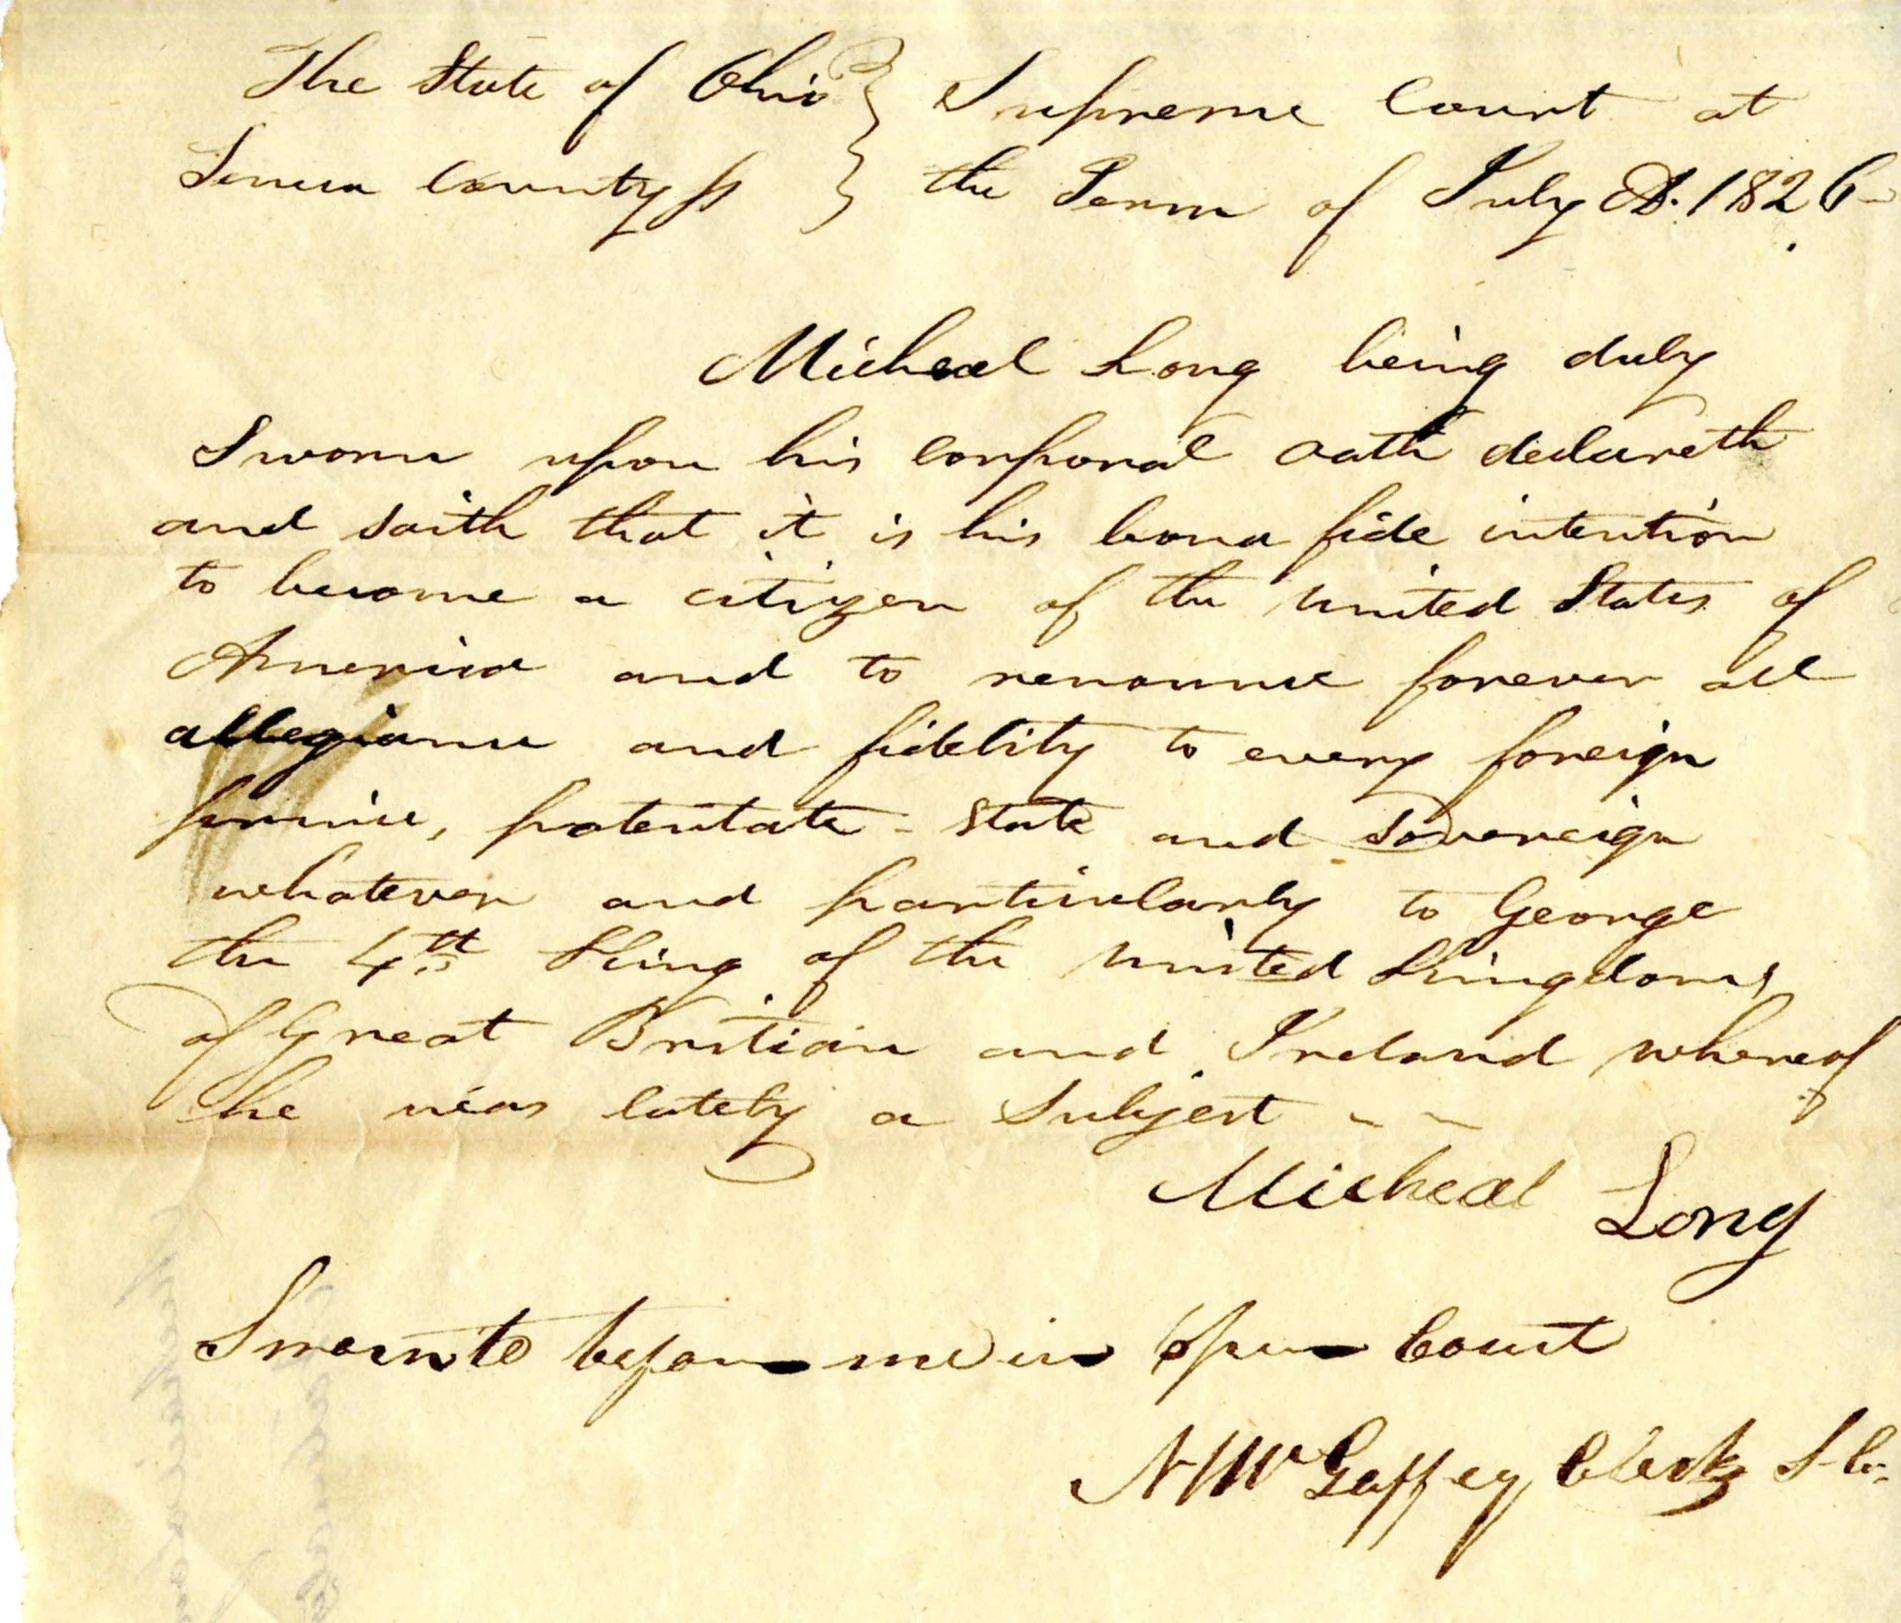 The State of Ohio } Supreme Court at
Seneca County ss } the Term of July AD. 1826-
Micheal Long being duly
Sworn upon his corporal oath declareth
and saith that it is his bona fide intention
to become a citizen of the United States of
America and to renounce forever all
allegiance and fidelity to every foreign
prince, potentate - state and Sovereign
whatever and particularly to George
the 4th King of the United Kingdoms
of Great Britian and Ireland whereof
he was lately a Subject - -
Micheal Long
Sworn to before me in Open Court
N McGaffey Clerk S Co.